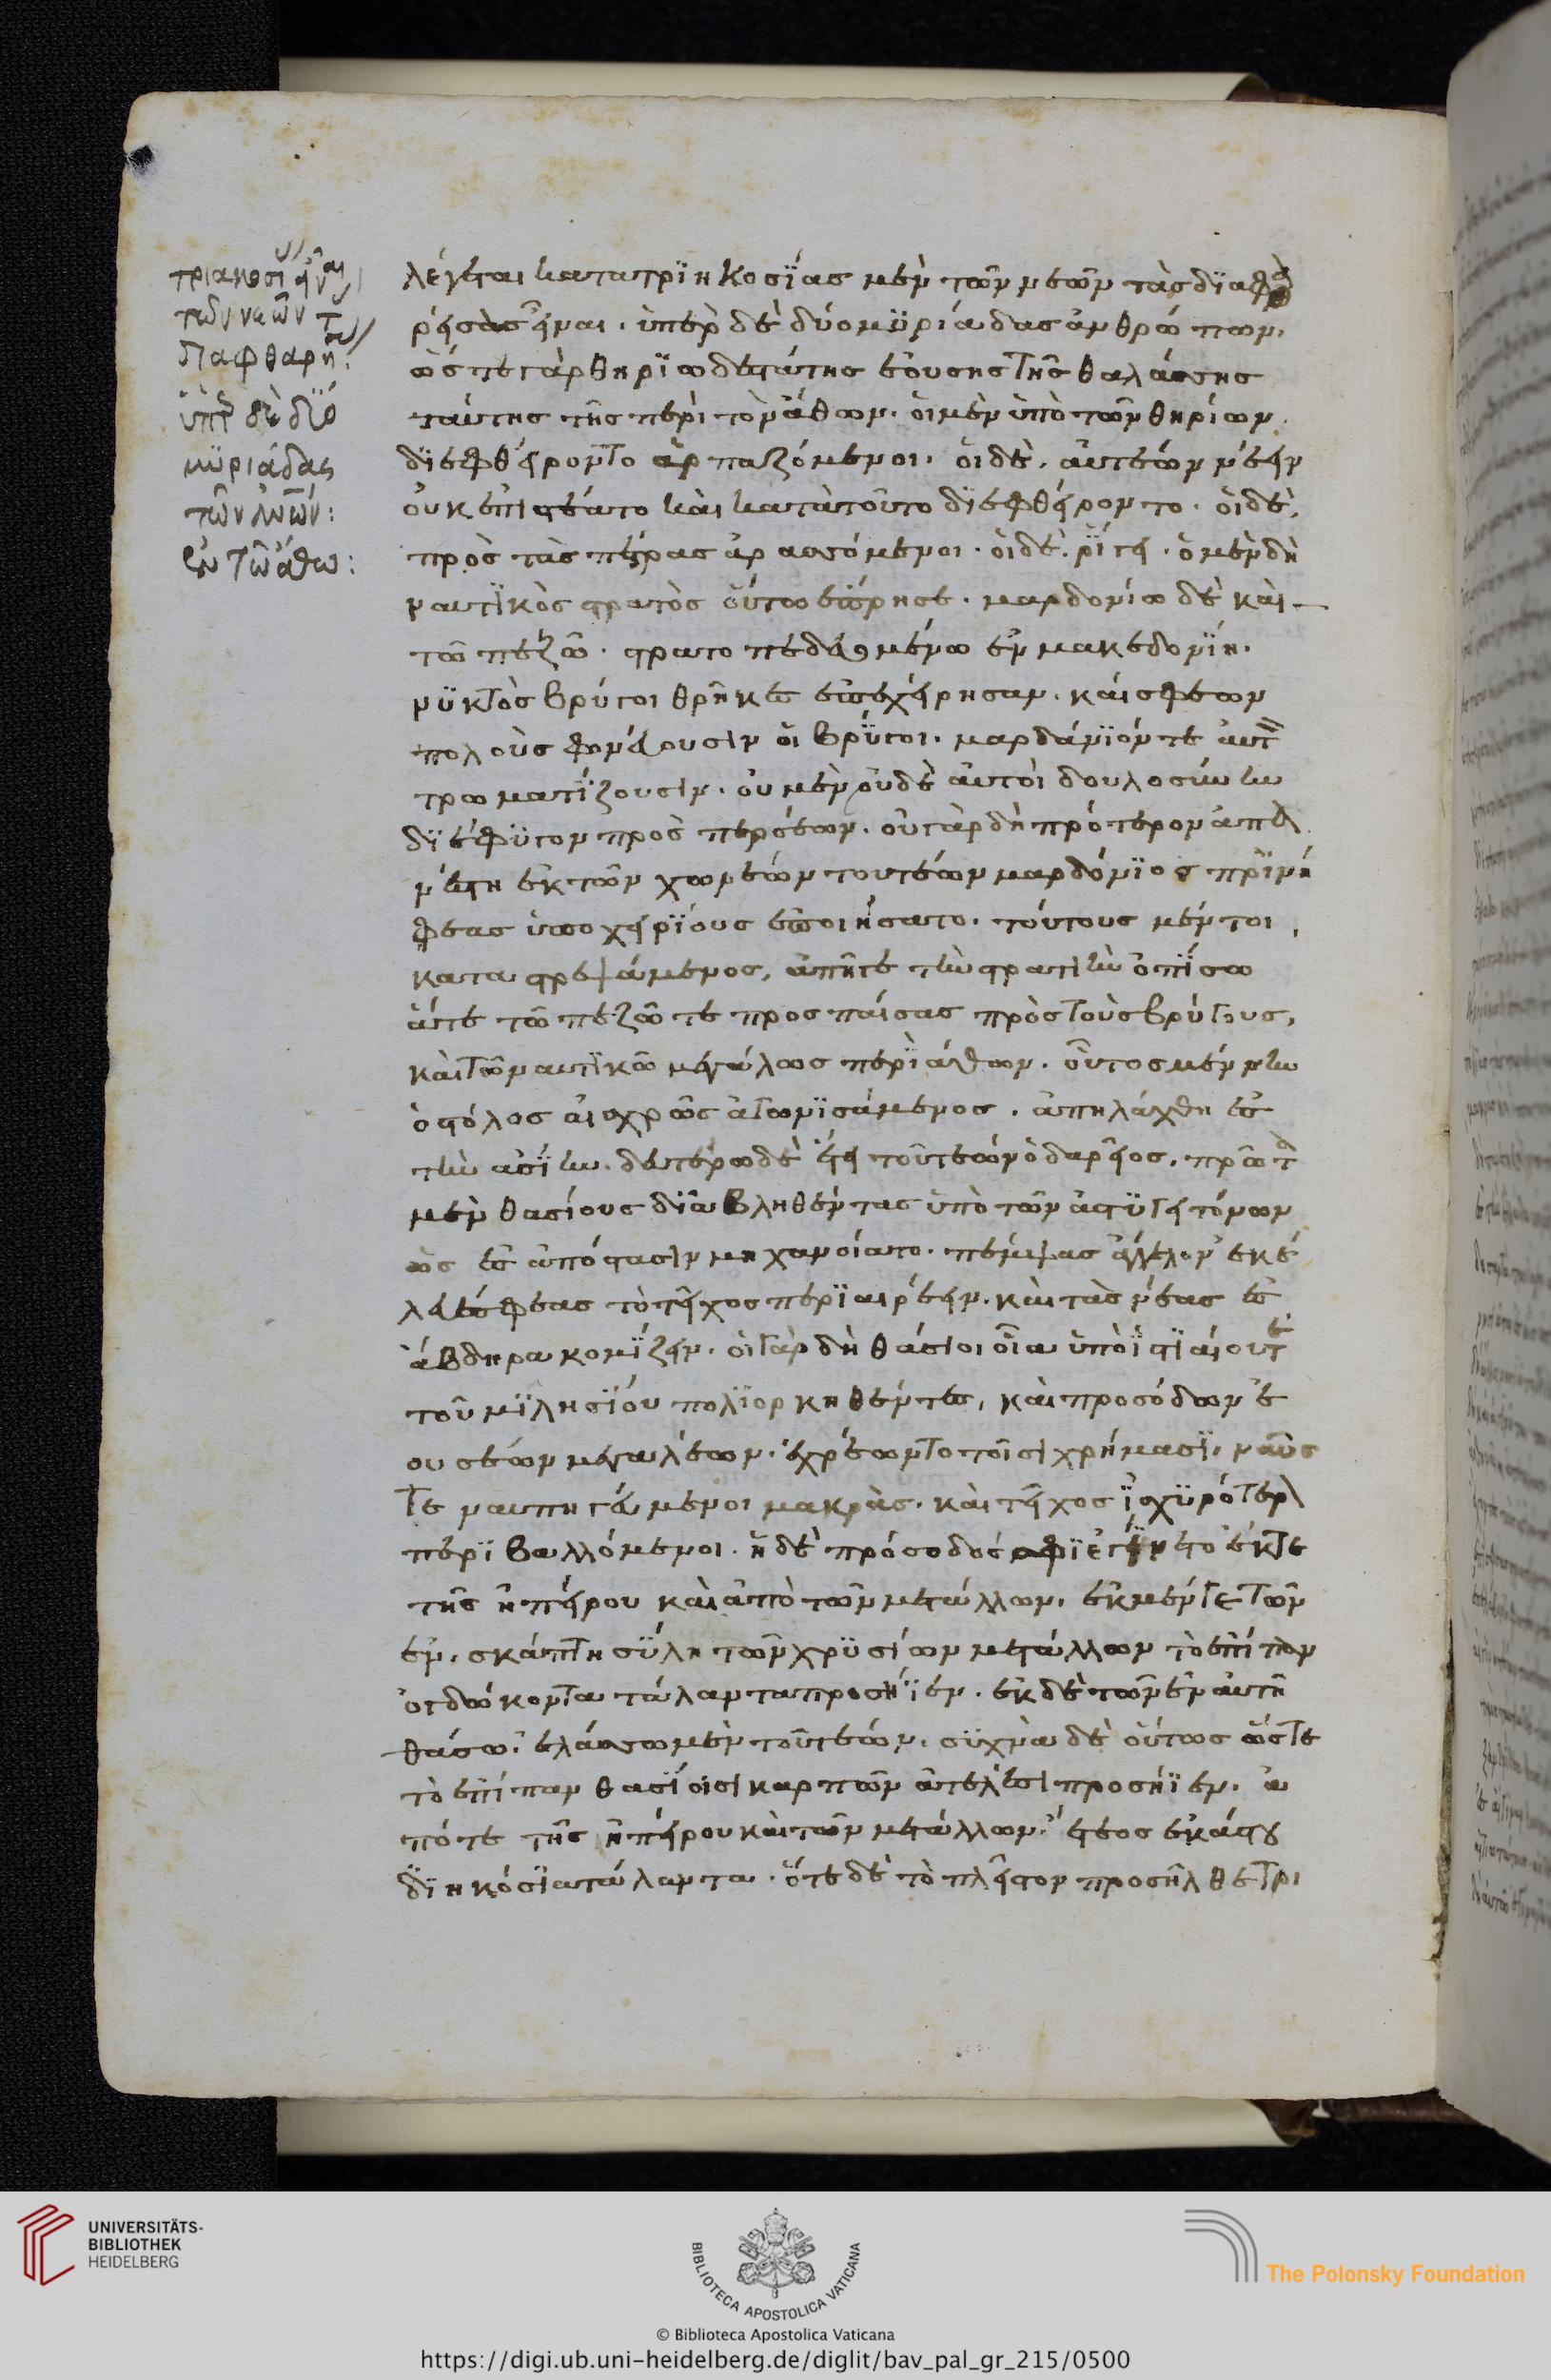 τριακοσί εἶναι
τῶν ναῶν τ
διαφθαρη:
ὑπὲρ δὲ δύο
μϋριάδας
τῶν ἀνῶν:
ἐν τῶ ἄθω:
λέγεται κατατρϊηκοσΐας μὲν τῶν νεῶν τὰς δϊαφθα
ρείσας εἶναι. ὑπερ δὲ δύο μϋριάδας ἀνθρώπων.
ὥστε γὰρ θηρϊωδεστάτης ἐούσης τῆς θαλάσσης
ταύτης τῆς περὶ τὸν ἄθων. ὁι μὲν ὑπὸ τῶν θηρίων
δϊεφθείροντο ἁρπαζόμενοι. ὁι δὲ, ἀυτεών νέειν
ὀυκ επιστέατο καὶ κατὰ τοῦτο δϊεφθείροντο. ὁι δὲ,
πρὸς τὰς πέτρας ἀρασσόμενοι. ὁι δὲ. ῥΐγει. ὁ μὲν δὴ
ναυτϊκὸς στρατὸς ὅυτω ἔπρησε. μαρδονίω δὲ καὶ
τῶ πεζῶ. στρατοπεδευομένω ἐν μακεδονίη.
νϋκτὸς βρύγοι θρῆκες επεχείρησαν. καί σφεων
πολοὺς φονεύουσιν ὁι βρΰγοι. μαρδόνϊόν τε ἀυτὸν
τρωματίζουσιν. ὀυ μὲν ὀυδὲ ἀυτοὶ δουλοσύνην
δϊέφϋγον προς περσέων. ὀυ γὰρ δὴ πρότερον ἀπα
νέστη ἐκ τῶν χωρέων τουτέων μαρδόνϊος πρϊν ή
σφεας ὑποχειρϊους ἐποιήσατο. τούτους μέντοι
καταστρεψάμενος, ἀπῆγε τὴν στρατιὴν ὀπΐσω
ἅτε τῶ πεζῶ τε προσπαίσας πρὸς τοὺς βρύγους,
καὶ τῶ ναυτϊκῶ μεγάλως περϊ ἄθων. οὗτος μέν νυν
ὁ στόλος ἀισχρῶς ἀγωνϊσάμενος. ἀπηλάχθη ἐς
τὴν ἀσΐην. δευτέρω δὲ ἔτει τουτεών ὁ δαρεῖος. πρῶτα
μὲν θασίους δϊαβληθέντας ὑπὸ τῶν ἀστϋγειτόνων
ὡς ἐς ἀπόστασιν μηχανοίατο. πέμψας ἄγγελον εκέ
λευέ σφεας τὸ τεῖχος περϊαιρέειν. καὶ τὰς νέας ἐς
ἄβδηρα κομΐζειν. ὁι γὰρ δὴ θάσιοι οἷα ὑπὸ ϊστϊαίου τε
τοῦ μϊλησΐου πολϊορκηθέντες, καὶ προσόδων ε
ουσεών μεγαλέων. ἐχρέωντο τοῖσι χρήμασϊ, ναῦς
τε ναυπηγεύμενοι μακρὰς. καὶ τεῖχος ϊσχϋρότερον
περϊβαλλόμενοι. ἡ δὲ πρόσοδός σφϊ εγίνετο ἐκ τε
τῆς ἠπείρου καὶ ἀπὸ τῶν μετάλλων. ἐκ μέν γε τῶν
ἐν. σκάπτη σΰλη τῶν χρϋσίων μετάλλων τὸ επίπαν
ὀγδώκοντα τάλαντα προσήϊεν. ἐκ δὲ τῶν ἐν ἀυτῆ
θάσω. ἐλάσσω μὲν τουτεών. σϋχνὰ δὲ ὅυτως ὥστε
τὸ επίπαν θασΐοισι καρπῶν ἀτελέσι προσήϊεν. ἀ
πό τε τῆς ἠπείρου καὶ τῶν μετάλλων. ἔτεος ἑκάστου
δϊηκόσϊα τάλαντα. ὅτε δὲ τὸ πλεῖστον προσῆλθε τρι
UNIVERSITÄTS-
BIBLIOTHEK
HEIDELBERG
BIBLIOTECA APOSTOLICA VATICANA
The Polonsky Foundation
© Biblioteca Apostolica Vaticana
https://digi.ub.uni-heidelberg.de/diglit/bav_pal_gr_215/0500